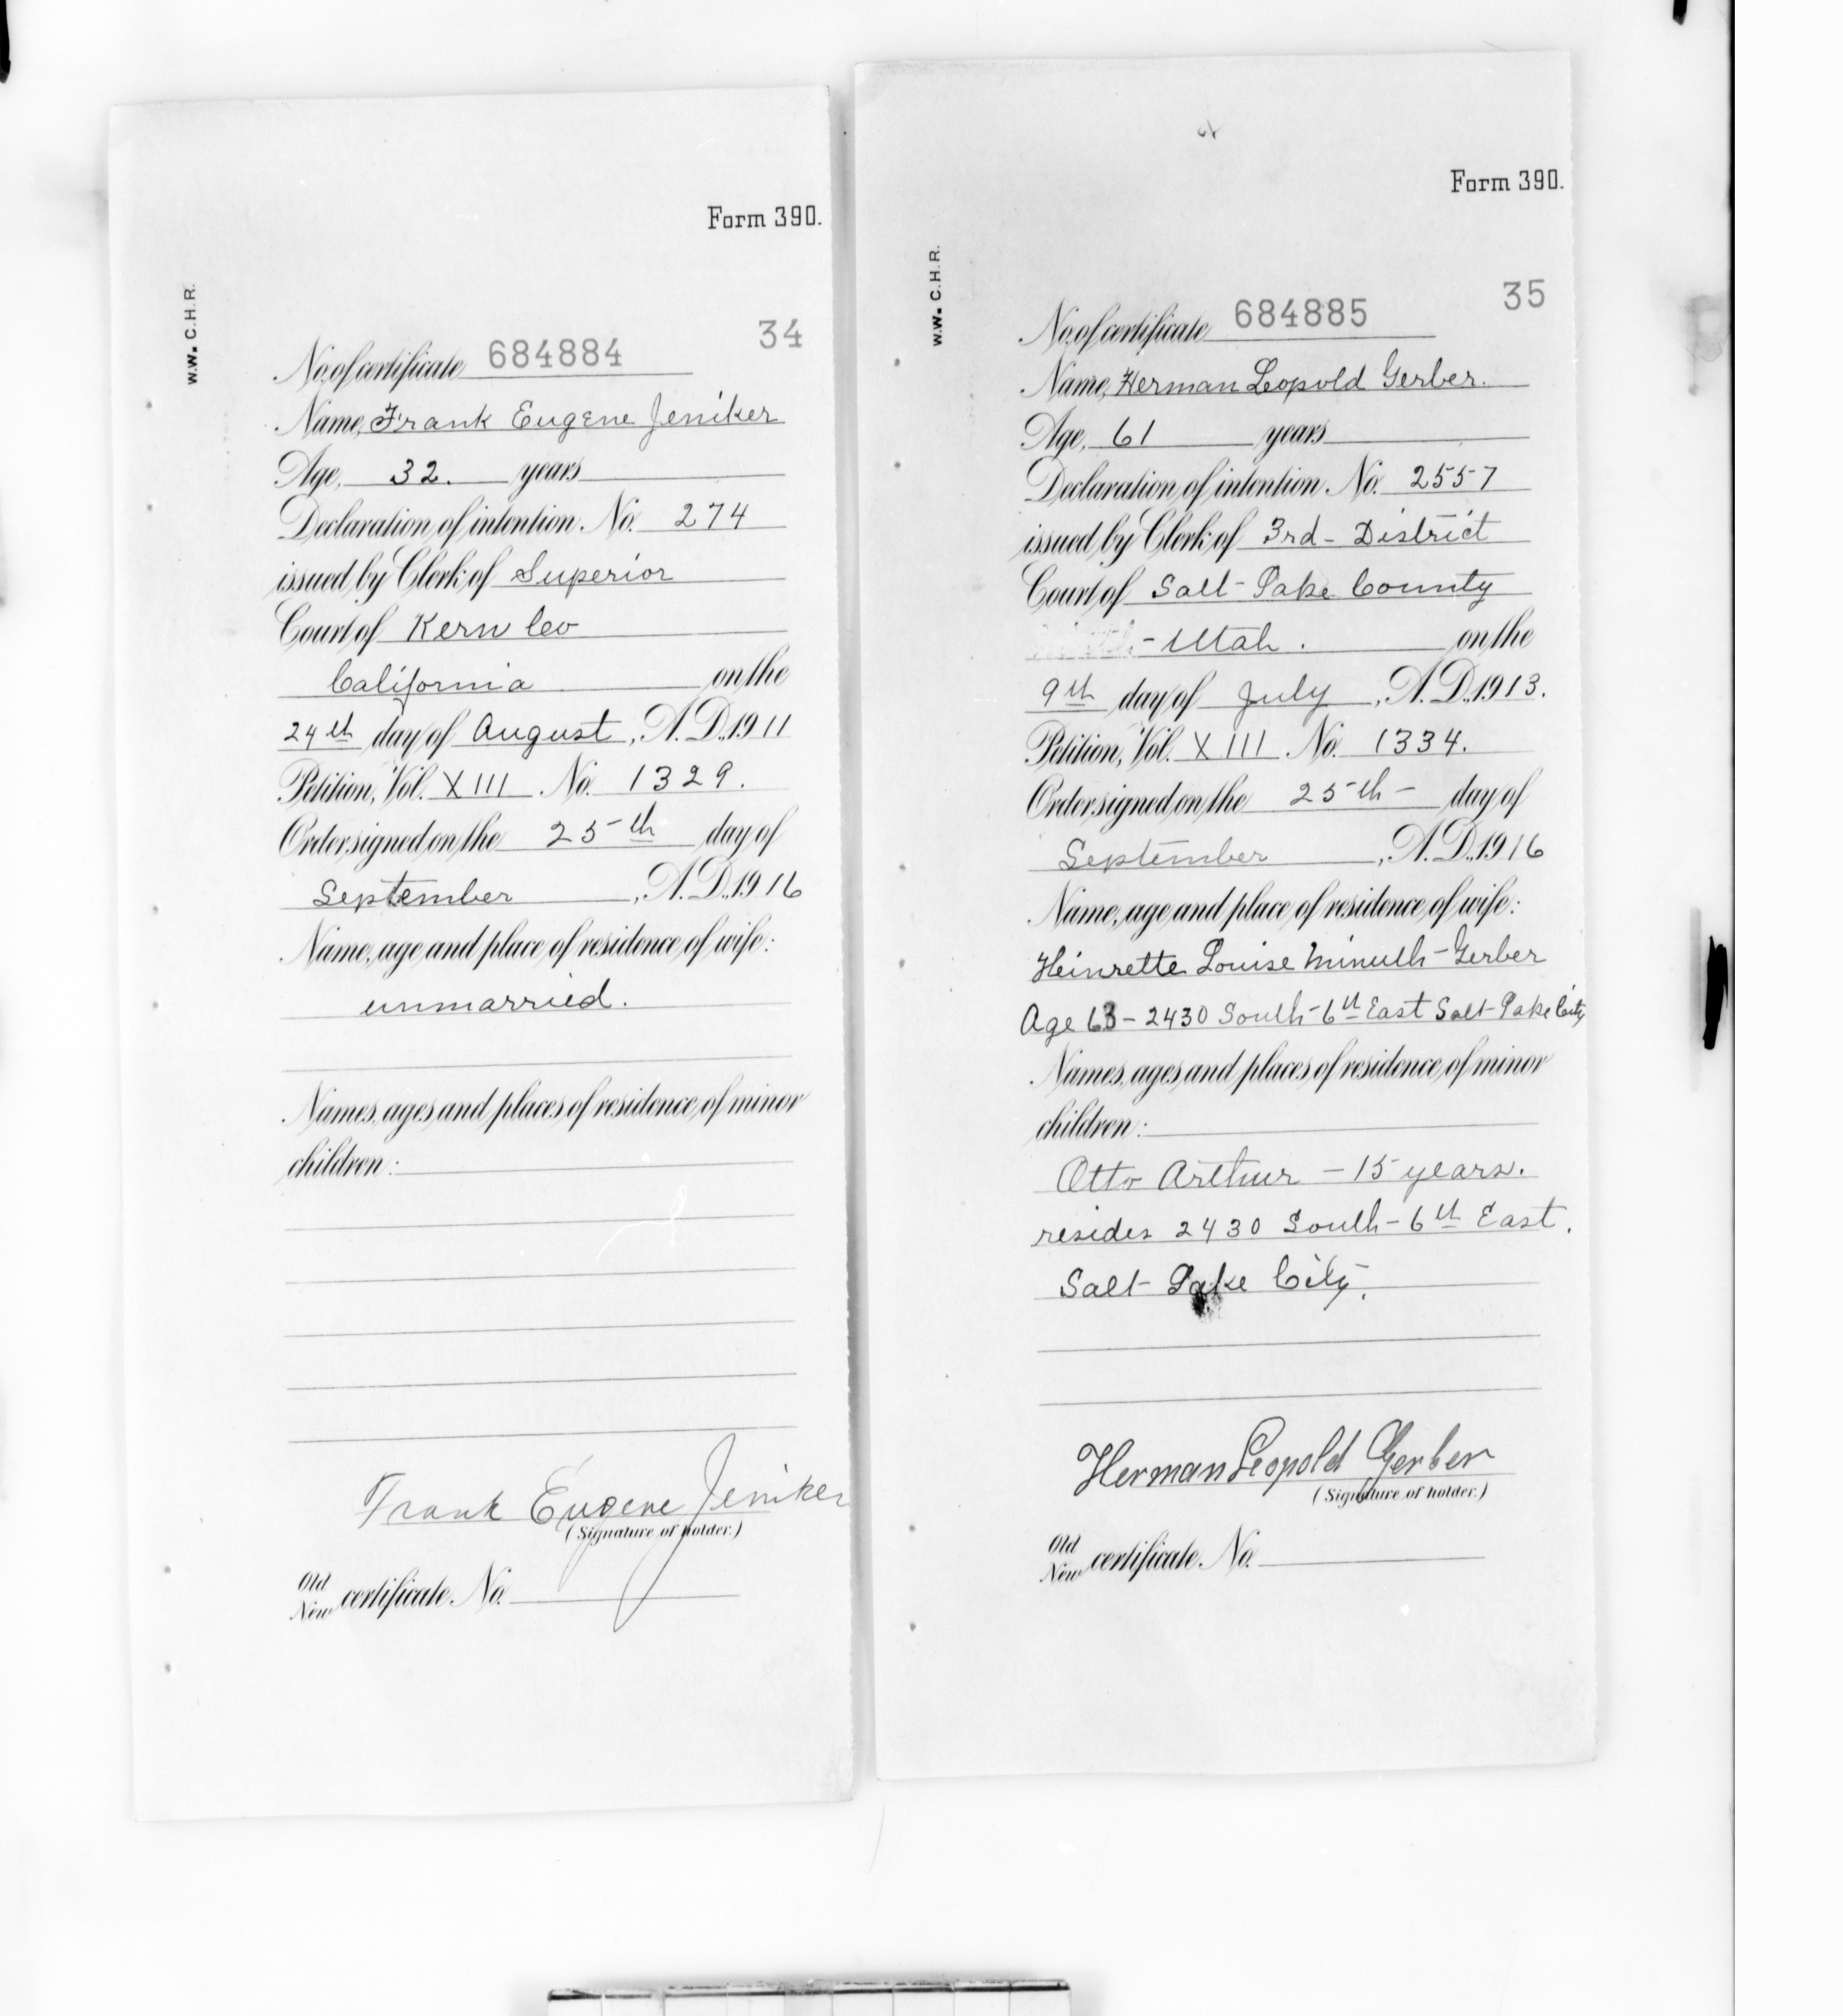 Form 390.
W.W. C.H.R.
34
No. of certificate 684884
Name, Frank Eugene Jeniker
Age, 32. years
Declaration of intention No. 274
issued by Clerk of Superior
Court of Kern Co
California on the
24th day of August, A.D. 1911
Petition, Vol. XIII No. 1329.
Order signed on the 25th day of
September, A.D. 1916
Name, age and place of residence of wife:
unmarried.
Names, ages and places of residence of minor
children:
Frank Eugene Jeniker
(Signature of holder.)
Old
New certificate No.
Form 390.
W.W. C.H.R.
35
No. of certificate 684885
Name, Herman Leopold Gerber.
Age, 61 years
Declaration of intention No. 2557
issued by Clerk of 3rd - District
Court of Salt Lake County
- Utah. on the
9th day of July, A.D. 1913.
Petition, Vol. XIII No. 1334.
Order signed on the 25th - day of
September, A.D. 1916
Name, age and place of residence of wife:
Heinrette Louise Minuth-Gerber
Age 63 - 2430 South - 6th East Salt Lake City
Names, ages and places of residence of minor
children:
Otto Arthur - 15 years.
resides 2430 South - 6th East.
Salt Lake City.
Herman Leopold Gerber
(Signature of holder.)
Old
New certificate No.